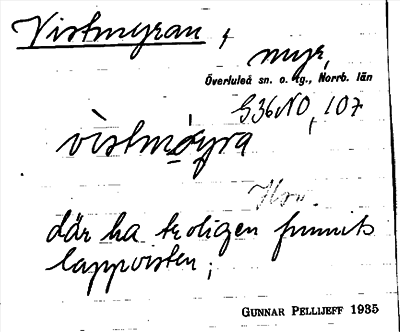 Vistmyran,
myr,
Överluleå sn. o. tg., Norrb. län
G36NO, 107
vistmøyra
där ha troligen funnits
lappvisten;
GUNNAR PELLIJEFF 1935